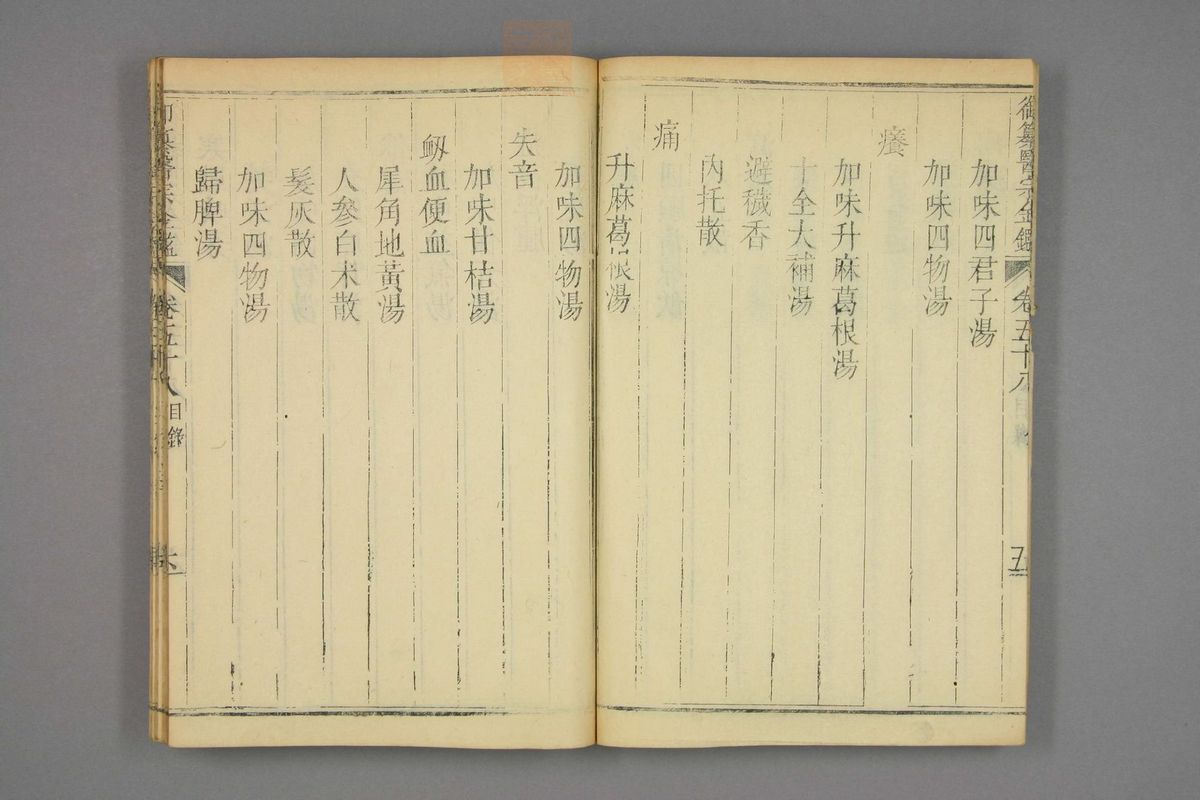 御纂醫宗金鑑 卷五十八 目錄 五
加味四君子湯
加味四物湯
癢
加味升麻葛根湯
十全大補湯
避穢香
內托散
痛
升麻葛根湯
加味四物湯
失音
加味甘桔湯
衂血便血
犀角地黃湯
人參白朮散
髮灰散
加味四物湯
歸脾湯
卷五十八 目錄 六